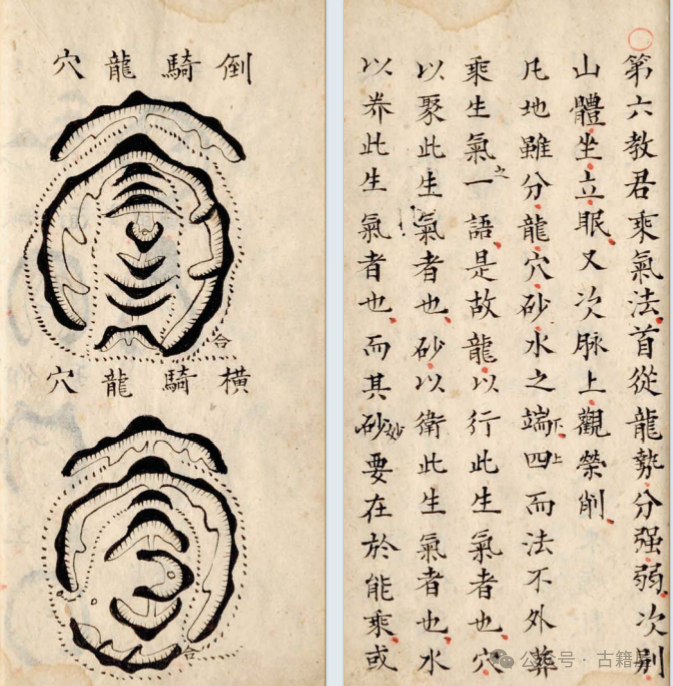 第六教君乘氣法首從龍勢分强弱次别
山體坐立眠又次脉上觀榮削
凡地雖分龍穴砂水之端四而法不外葬
下上
乘生氣一語是故龍以行此生氣者也穴
之
以聚此生氣者也砂以衛此生氣者也水
以养此生氣者也而其砂要在於能乘或
妙
倒騎龍穴
合
橫騎龍穴
合
公众号 · 古籍